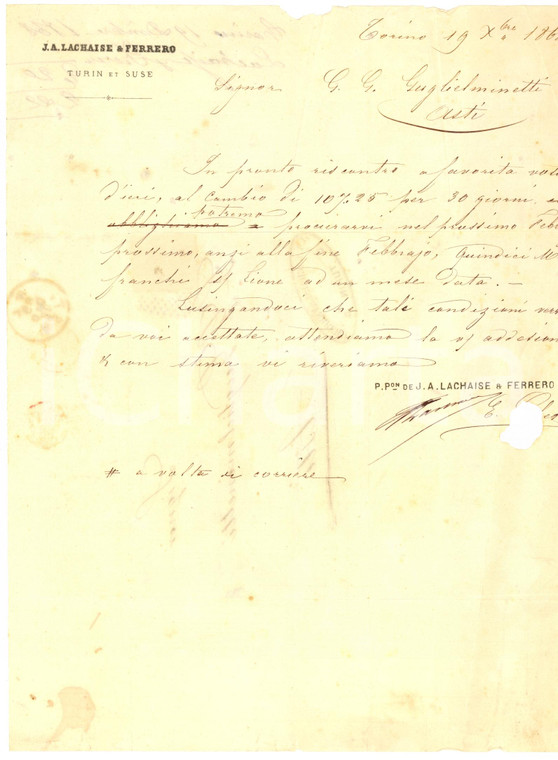 J.A. LACHAISE & FERRERO
TURIN ET SUSE
Torino 19 Xbre 186
Signor G. G. Guglielminetti
Asti
In pronto riscontro a favorita vos
d'ieri, al Cambio di 107.25 per 30 giorni
potremo
abblighiamo procurarvi nel prossimo Feb
prossimo, anzi alla fine Febbrajo, Quindici M
franchi s/ Lione ad un mese data. —
Lusingandoci che tali condizioni
da voi accettate, attendiamo la v/
& con stima vi riveriamo
P.PON DE J.A. LACHAISE & FERRERO
# a volta di corriere